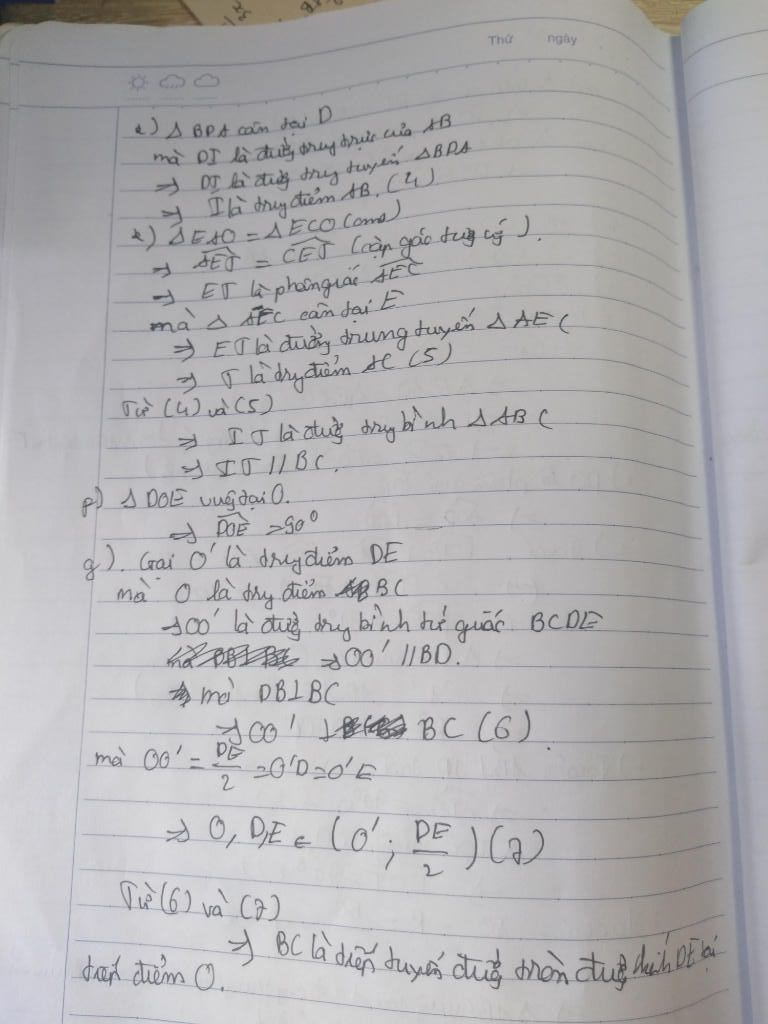 Thứ ngày
*) Δ BDA cân tại D
mà DI là đường trung trực của AB
=> DI là đường trung tuyến ΔBDA
=> I là trung điểm AB. (4)
*) ΔEAO = ΔECO (cmo)
=> AEJ = CEJ (cặp góc tương ứng).
=> EJ là phân giác AEC
mà Δ AEC cân tại E
=> EJ là đường trung tuyến Δ AEC
=> J là trung điểm AC (5)
Từ (4) và (5)
=> IJ là đường trung bình Δ ABC
=> IJ // BC.
f) Δ DOE vuông tại O.
=> DOE = 90°
g). Gọi O' là trung điểm DE
mà O là trung điểm BC
=> OO' là đường trung bình tứ giác BCDE
=> OO' // BD.
mà DB⊥BC
=> OO' ⊥ BC (6).
mà OO' = DE/2 = O'D = O'E
=> O, D, E ∈ (O'; DE/2) (7)
Từ (6) và (7)
=> BC là tiếp tuyến đường tròn đường kính DE tại
tiếp điểm O.